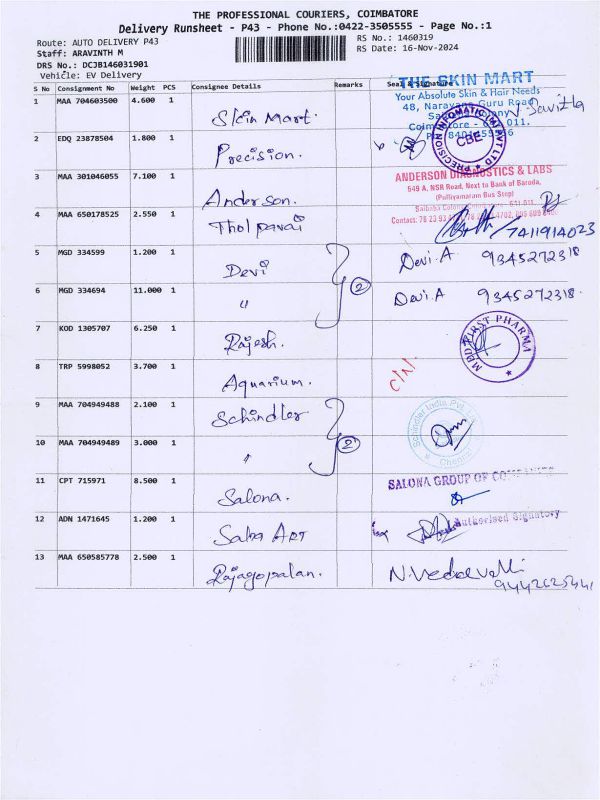 THE PROFESSIONAL COURIERS, COIMBATORE
Delivery Runsheet - P43 - Phone No.:0422-3505555 - Page No.:1
Route: AUTO DELIVERY P43
RS No.: 1460319
Staff: ARAVINTH M
RS Date: 16-Nov-2024
DRS No.: DCJB146031901
Vehicle: EV Delivery
S No Consignment No Weight PCS Consignee Details Remarks Seal & Signature
THE SKIN MART
Your Absolute Skin & Hair Needs
48, Narayana Guru Road
1 MAA 704603500 4.600 1 Skin Mart.
2 EDQ 23878504 1.800 1 Precision.
PRECISION INFOMATIC (M) PVT LTD
CBE
3 MAA 301046055 7.100 1 Anderson.
ANDERSON DIAGNOSTICS & LABS
549 A, NSR Road, Next to Bank of Baroda,
(Pulliyamaram Bus Stop)
4 MAA 650178525 2.550 1 Tholpavai
7411914023
5 MGD 334599 1.200 1 Devi Devi.A 9345272318
2
6 MGD 334694 11.000 1 " Devi.A 9345272318.
7 KOD 1305707 6.250 1 Rajesh.
FIRST PHARMA
8 TRP 5998052 3.700 1 Aquarium.
9 MAA 704949488 2.100 1 Schindler
Schindler India Pvt. Ltd
Chennai
2
10 MAA 704949489 3.000 1 "
11 CPT 715971 8.500 1 Salona.
SALONA GROUP OF COMPANIES
12 ADN 1471645 1.200 1 Saba ART
Authorised Signatory
13 MAA 650585778 2.500 1 Rajagopalan.